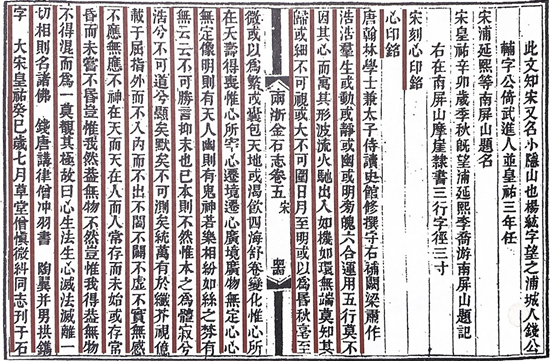 此文知宋又名小隱山也楊紘字望之浦城人錢公
輔字公倚武進人並皇祐三年任
宋浦延熙等南屏山題名
宋皇祐辛卯歲季秋既望浦延熙李喬游南屏山題記
右在南屏山摩崖隸書三行字徑三寸
宋刻心印銘
心印銘
唐翰林學士兼太子侍讀史館修撰守右補闕梁肅作
浩浩羣生或動或靜或幽或明旁魄六合運用五行莫不
因其心而寓其形波流火馳出入如機如環無端莫知其
歸或細不可視或大不可圍日月至明或以爲昏秋毫至
兩浙金石志卷五 宋
微或以爲繁或囊包天地或渴飲四海舒卷變化惟心所
在夭壽得喪惟心所宰心遷境遷心廣境廣物無定心心
無定像明則有天人幽則有鬼神若樂相紛如絲之棼有
無云云不可勝言抑末也已本則不然惟本之爲體寂兮
浩兮不可道兮顯矣默矣不可測矣統萬有於纖芥視億
載于屈指外而不入內而不出不闔不闢不虛不實無感
不應無應不神在天而天在人而人常存而未始或存常
昏而未嘗不昏豈惟我然蓋無物不然豈惟我得蓋無物
不得混而爲一莫覩其極故曰心生法生心滅法滅離一
切相則名諸佛 錢唐講律僧冲羽書 陶翼并男拱鐫
字 大宋皇祐癸巳歲七月草堂僧慎微糾同志刊于石